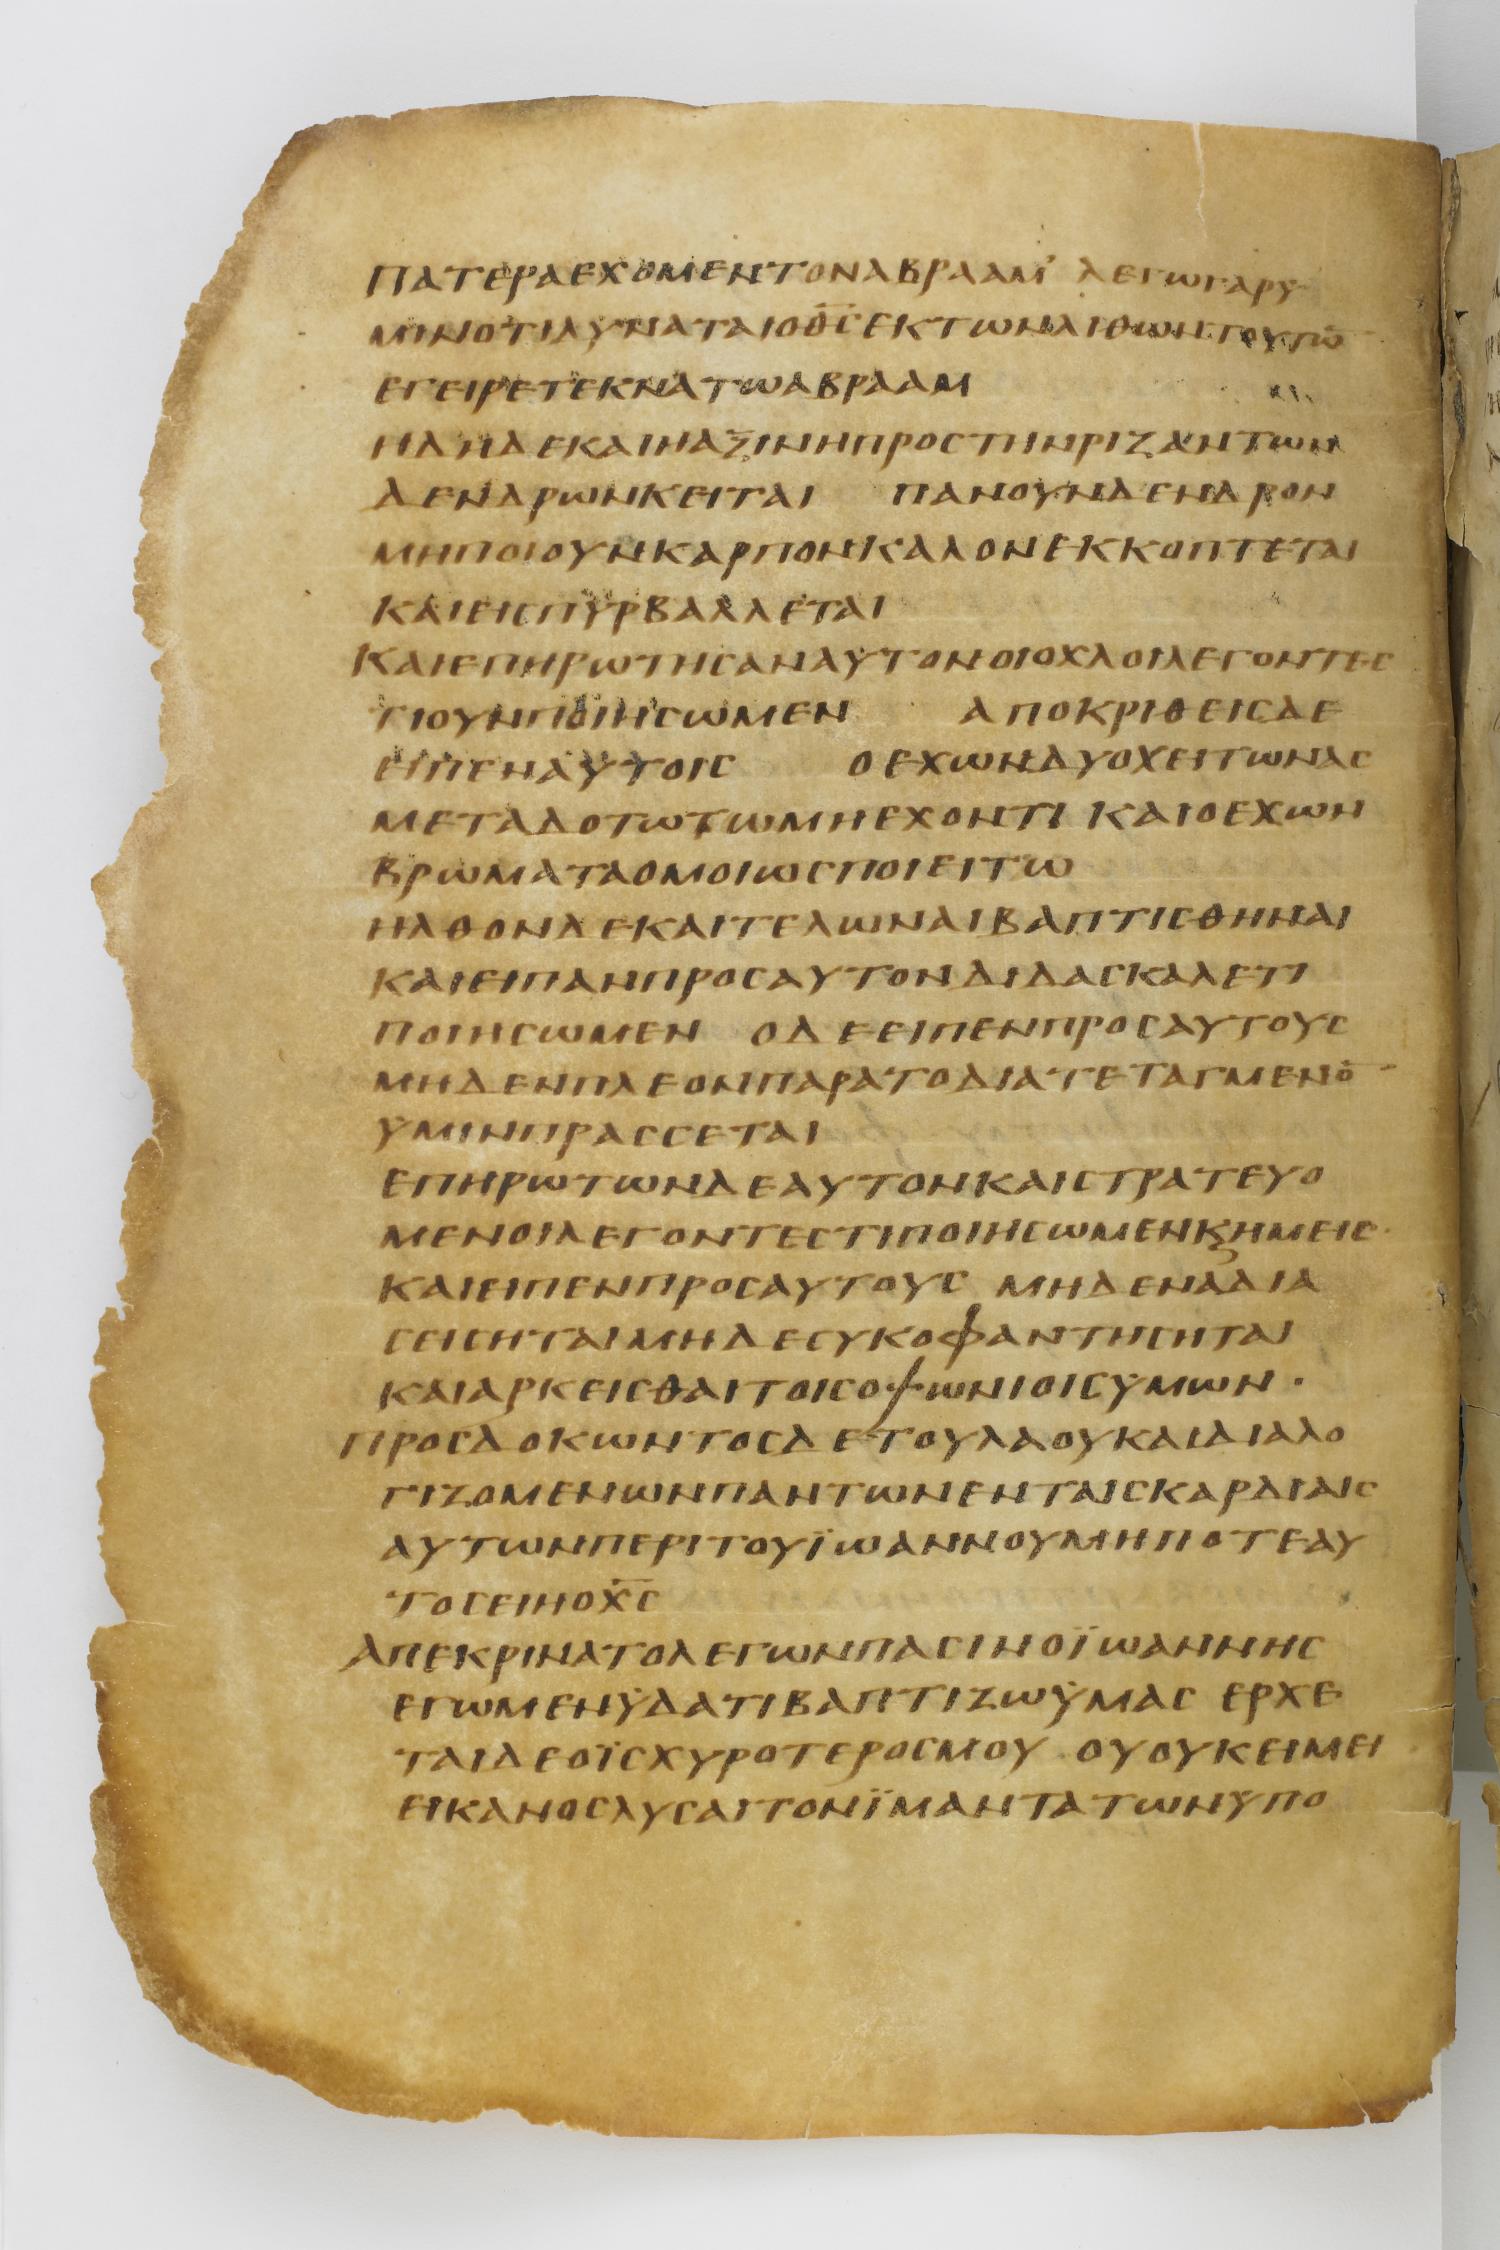 ΠΑΤΕΡΑΕΧΟΜΕΝΤΟΝΑΒΡΑΑΜ’ ΛΕΓΩΓΑΡΥ
ΜΙΝΟΤΙΔΥΝΑΤΑΙΟΘ̅Σ̅ΕΚΤΩΝΛΙΘΩΝΤΟΥΤΩ̅
ΕΓΕΙΡΕΤΕΚΝΑΤΩΑΒΡΑΑΜ
ΗΔΗΔΕΚΑΙΗΑΞΙΝΗΠΡΟΣΤΗΝΡΙΖΑΝΤΩΝ
ΔΕΝΔΡΩΝΚΕΙΤΑΙ ΠΑΝΟΥΝΔΕΝΔΡΟΝ
ΜΗΠΟΙΟΥΝΚΑΡΠΟΝΚΑΛΟΝΕΚΚΟΠΤΕΤΑΙ
ΚΑΙΕΙΣΠΥΡΒΑΛΛΕΤΑΙ
ΚΑΙΕΠΗΡΩΤΗΣΑΝΑΥΤΟΝΟΙΟΧΛΟΙΛΕΓΟΝΤΕΣ
ΤΙΟΥΝΠΟΙΗΣΩΜΕΝ ΑΠΟΚΡΙΘΕΙΣΔΕ
ΕΙΠΕΝΑΥΤΟΙΣ ΟΕΧΩΝΔΥΟΧΕΙΤΩΝΑΣ
ΜΕΤΑΔΟΤΩΤΩΜΗΕΧΟΝΤΙ ΚΑΙΟΕΧΩΝ
ΒΡΩΜΑΤΑΟΜΟΙΩΣΠΟΙΕΙΤΩ
ΗΛΘΟΝΔΕΚΑΙΤΕΛΩΝΑΙΒΑΠΤΙΣΘΗΝΑΙ
ΚΑΙΕΙΠΑΝΠΡΟΣΑΥΤΟΝΔΙΔΑΣΚΑΛΕΤΙ
ΠΟΙΗΣΩΜΕΝ ΟΔΕΕΙΠΕΝΠΡΟΣΑΥΤΟΥΣ
ΜΗΔΕΝΠΛΕΟΝΠΑΡΑΤΟΔΙΑΤΕΤΑΓΜΕΝΟ̅
ΥΜΙΝΠΡΑΣΣΕΤΑΙ
ΕΠΗΡΩΤΩΝΔΕΑΥΤΟΝΚΑΙΣΤΡΑΤΕΥΟ
ΜΕΝΟΙΛΕΓΟΝΤΕΣΤΙΠΟΙΗΣΩΜΕΝΚϗΗΜΕΙΣ·
ΚΑΙΕΙΠΕΝΠΡΟΣΑΥΤΟΥΣ ΜΗΔΕΝΑΔΙΑ
ΣΕΙΣΗΤΑΙΜΗΔΕΣΥΚΟΦΑΝΤΗΣΗΤΑΙ
ΚΑΙΑΡΚΕΙΣΘΑΙΤΟΙΣΟΨΩΝΙΟΙΣΥΜΩΝ·
ΠΡΟΣΔΟΚΩΝΤΟΣΔΕΤΟΥΛΑΟΥΚΑΙΔΙΑΛΟ
ΓΙΖΟΜΕΝΩΝΠΑΝΤΩΝΕΝΤΑΙΣΚΑΡΔΙΑΙΣ
ΑΥΤΩΝΠΕΡΙΤΟΥΪΩΑΝΝΟΥΜΗΠΟΤΕΑΥ
ΤΟΣΕΙΗΟΧ̅Σ̅
ΑΠΕΚΡΙΝΑΤΟΛΕΓΩΝΠΑΣΙΝΟΪΩΑΝΝΗΣ
ΕΓΩΜΕΝΫΔΑΤΙΒΑΠΤΙΖΩΫΜΑΣ ΕΡΧΕ
ΤΑΙΔΕΟΪΣΧΥΡΟΤΕΡΟΣΜΟΥ ΟΥΟΥΚΕΙΜΕΙ
ΕΙΚΑΝΟΣΛΥΣΑΙΤΟΝΪΜΑΝΤΑΤΩΝΥΠΟ